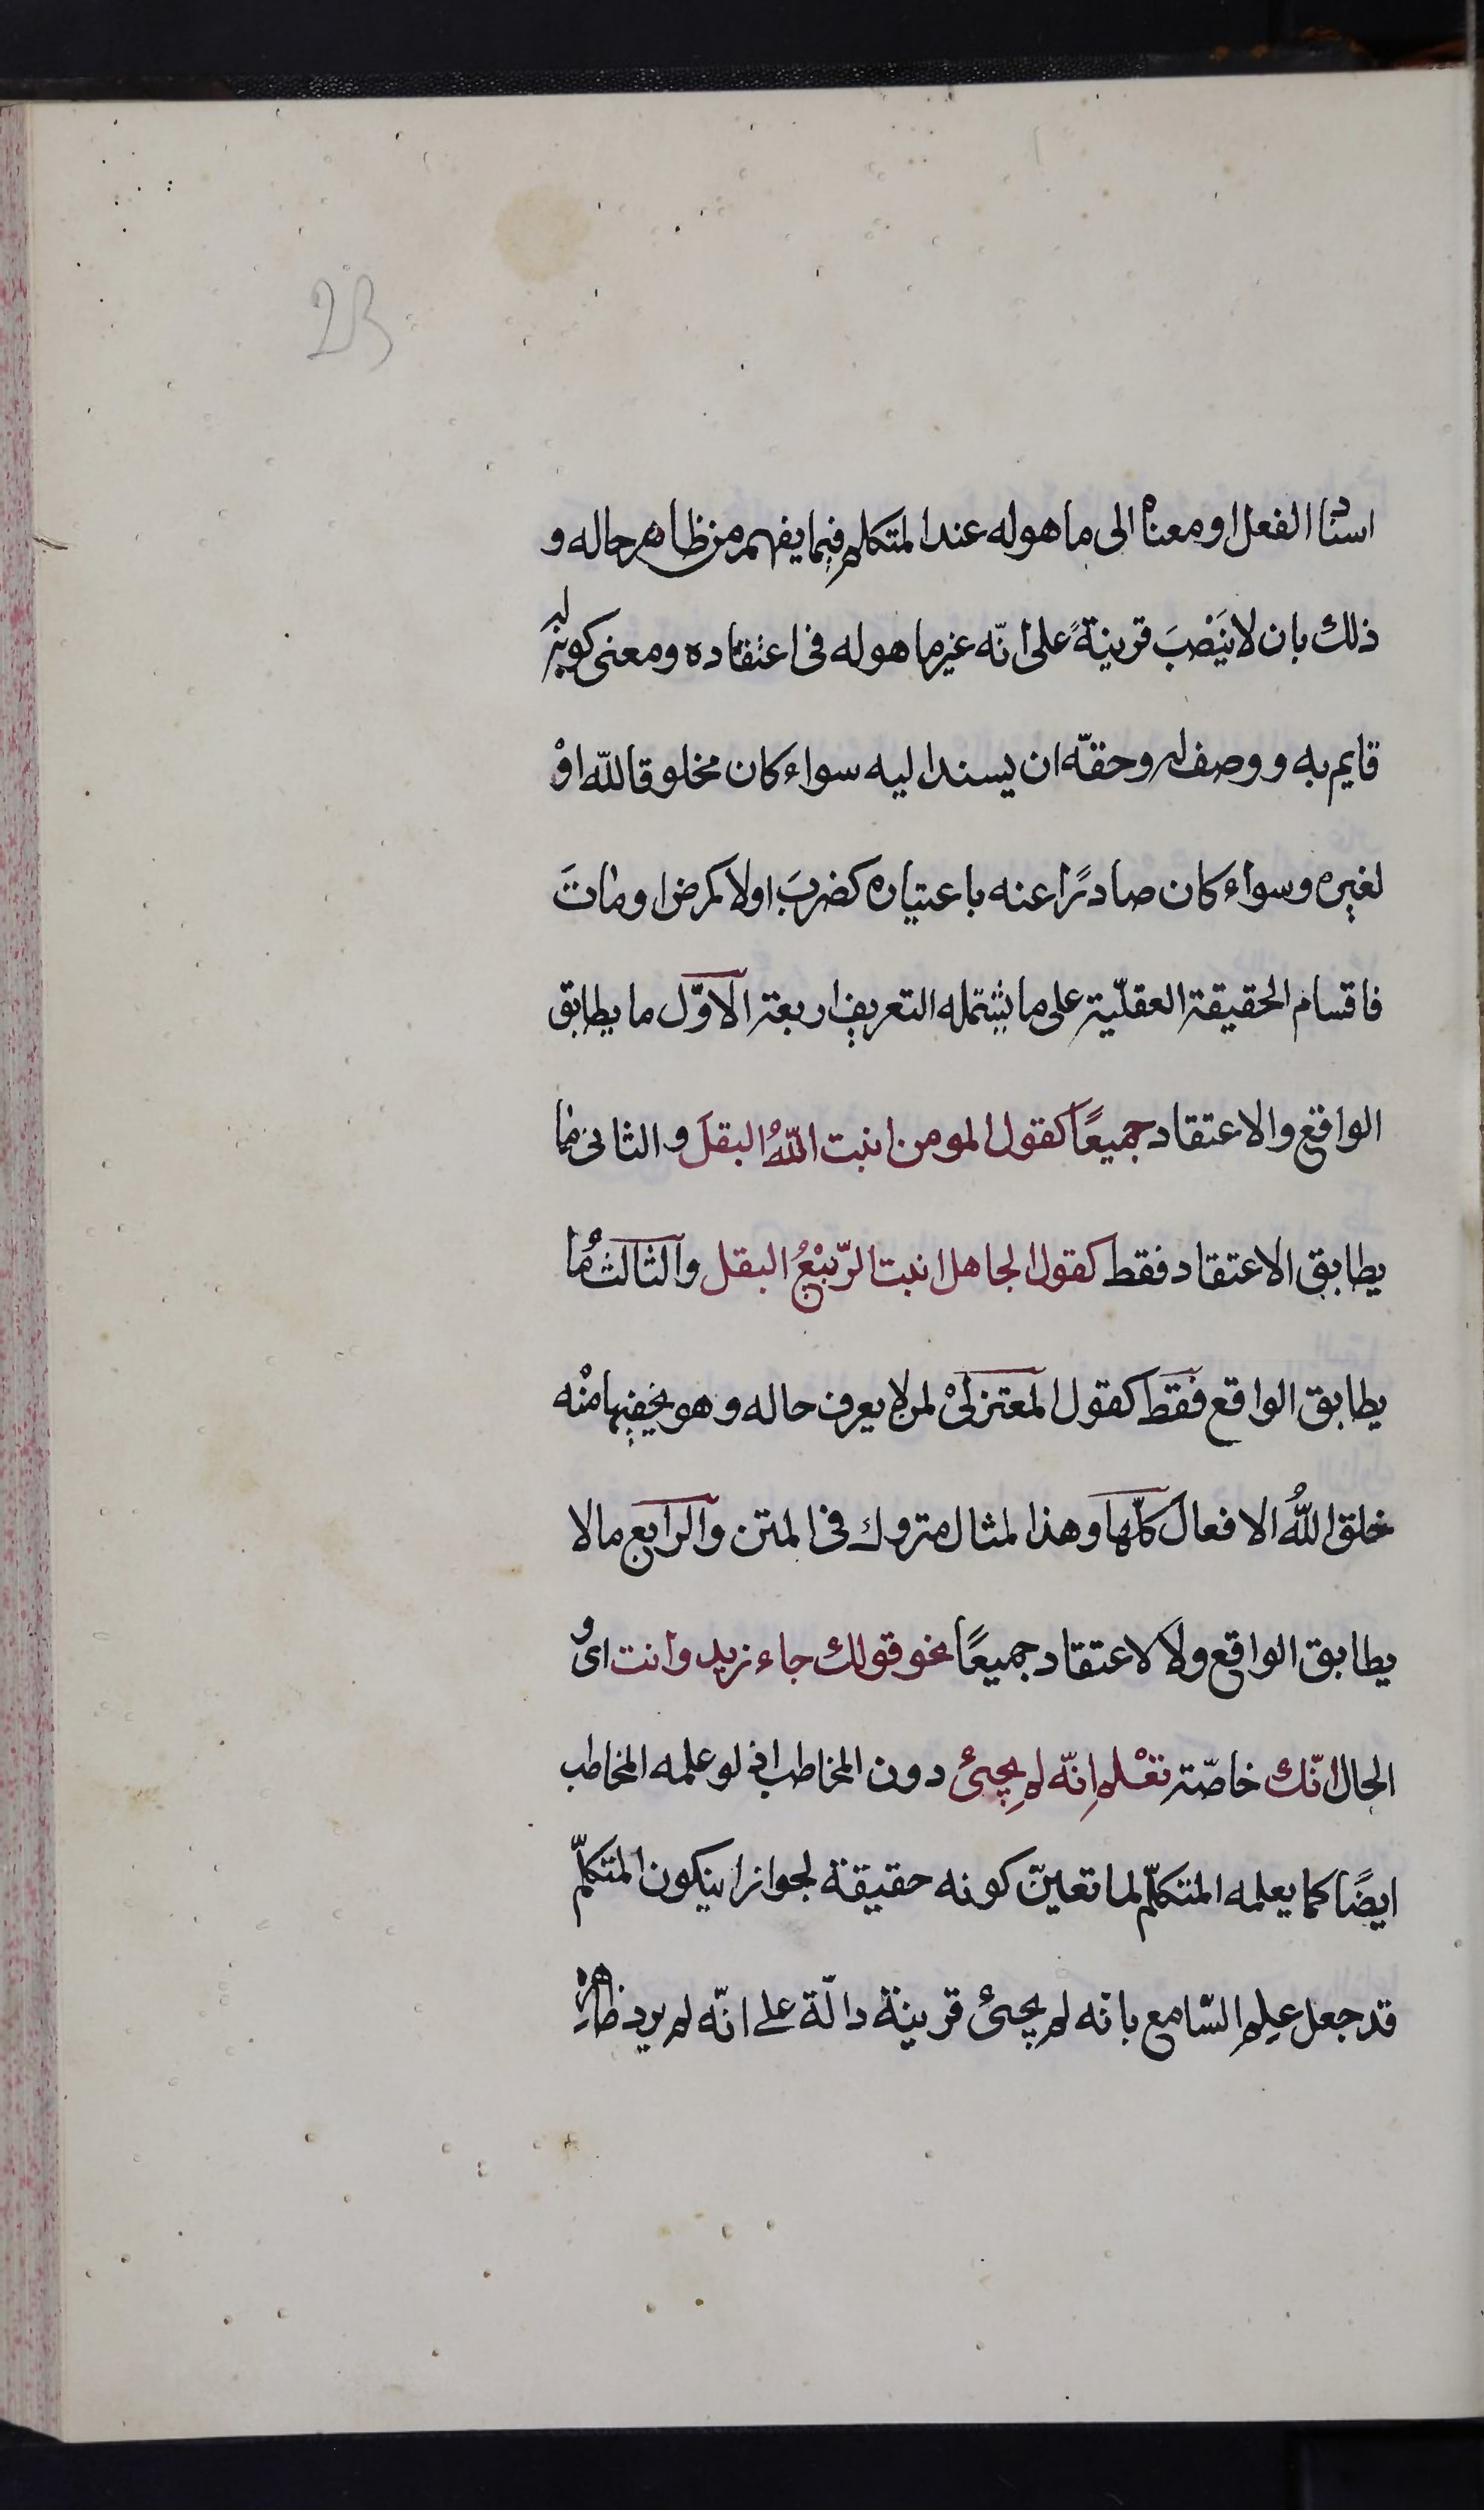 23
اسناد الفعل او معناه الى ما هو له عند المتكلم فيما يفهم من ظاهر حاله و
ذلك بان لا ينصبَ قرينةً على انّه غير ما هو له فى اعتقاده ومعنى كونه له
قايم به و وصف له وحقّه ان يسند اليه سواء كان مخلوقا لله اوْ
لغيره وسواء كان صادرًا عنه باعتياره كضربَ اولا كمرض او ماتَ
فاقسام الحقيقة العقليّة على ما يشتمله التعريف اربعة الاوّل ما يطابق
الواقع والاعتقاد جميعًا كقول المومن انبت اللهُ البقلَ والثانى ما
يطابق الاعتقاد فقط كقول الجاهل انبت الرّبيْعُ البقل والثالثُ ما
يطابق الواقع فقط كقول المعتزلىْ لمن لا يعرف حاله وهو يخفيها منْه
خلق اللهُ الافعالَ كلّها وهذا لمثال متروك فى المتن والرابع ما لا
يطابق الواقع ولا لاعتقاد جميعًا نحو قولك جاء زيد وانت اى و
الحال انّك خاصّة تعْلم انّه لم يجئ دون المخاطب اذ لو علمه المخاطب
ايضًا كما يعلمه المتكلّم لما تعيّن كونه حقيقة لجواز ان يكون المتكلّم
قد جعل علم السّامع بانه لم يجئ قرينة دالّة على انّه لم يرد ظاهره